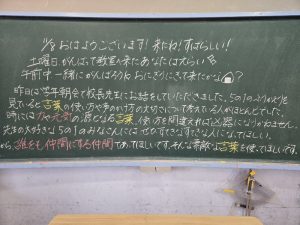 11/8 おはようございます! 来たね! すばらしい!
土曜日、がんばって教室へ来たあなたはえらい
午前中一緒にがんばろうね おにぎりにぎって来てたかな?
昨日は学年朝会で校長先生にお話をしていただきました。5の1のふりかえりを
見ていると言葉の使い方や声のかけ方の大切さについて考えている人がほとんどでした。
時には力や元気の源となる言葉、使い方を間違えれば凶器になりかねません。
先生の大好きな5の1のみなさんにはぜひすてきなすてきな人になってほしい。
から、誰をも仲間にする仲間であってほしいです。そんな素敵な言葉を使ってほしいです。